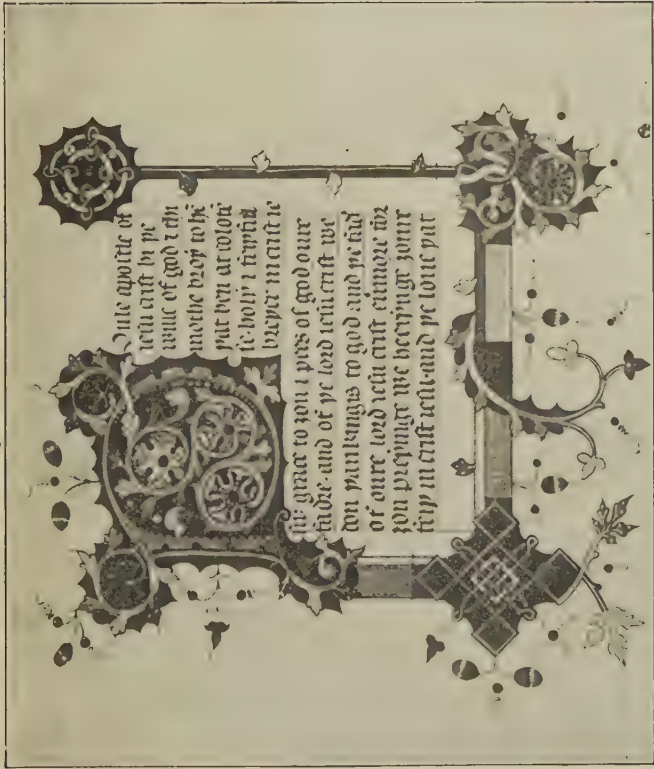 Poule apostle of
iesu crist bi þe
wille of god ⁊ thi
mothe broþ to hē
þat ben at colose
se holy ⁊ feiþful
breþer in crist ie
su grace to ȝou ⁊ pees of god oure
fadre and of þe lord iesu crist we
don þankingis to god and þe fad'
of oure lord iesu crist euermore for
ȝou preyinge we heeringe ȝoure
feiþ in crist iesu and þe loue þat